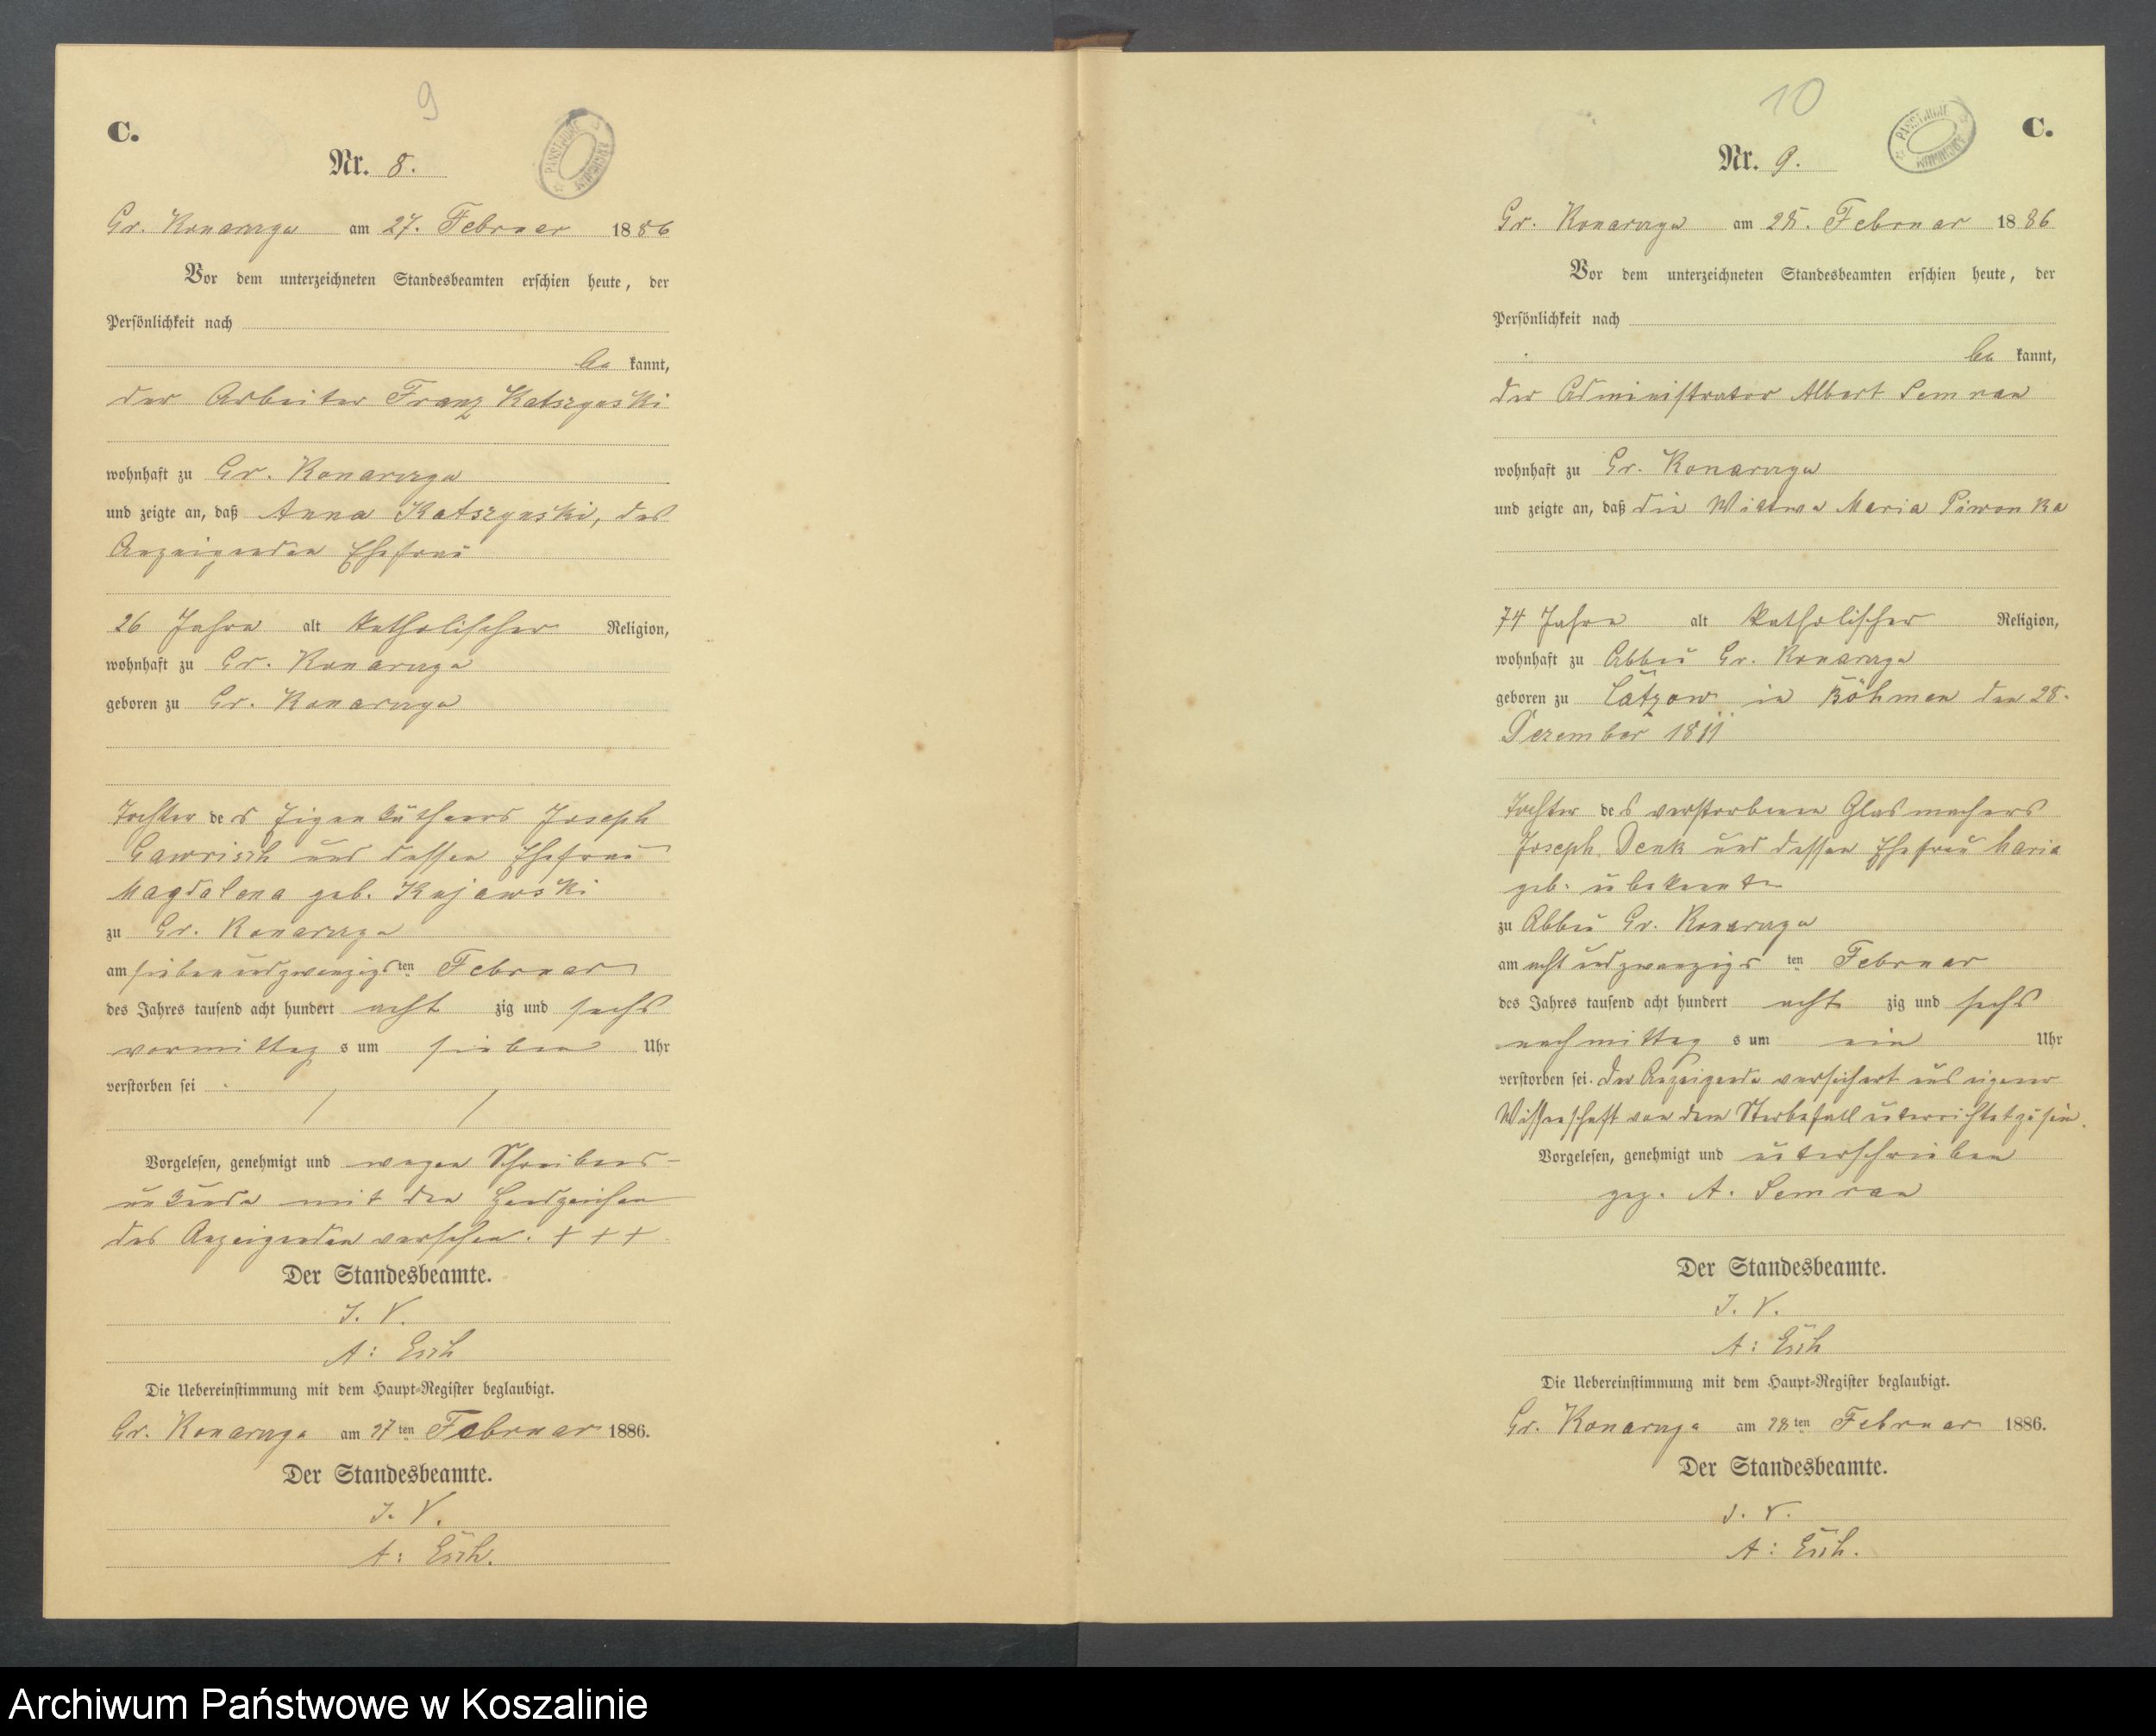 9
C.
Nr. 8.
Gr. Konarczyn am 27. Februar 1886
Vor dem unterzeichneten Standesbeamten erschien heute, der
Persönlichkeit nach
be kannt,
der Arbeiter Franz Katszynski
wohnhaft zu Gr. Konarczyn
und zeigte an, daß Anna Katszynski, des
Anzeigenden Ehefrau
26 Jahre alt katholischer Religion,
wohnhaft zu Gr. Konarczyn
geboren zu Gr. Konarczyn
Tochter des Eigenkäthners Joseph
Gawrisch und dessen Ehefrau
Magdalena geb. Kujawski
zu Gr. Konarczyn
am siebenundzwanzigsten Februar
des Jahres tausend acht hundert acht zig und sechs
vormittag s um sieben Uhr
verstorben sei
Vorgelesen, genehmigt und wegen Schreibens-
unkunde mit den Handzeichen
des Anzeigenden versehen. + + +
Der Standesbeamte.
I. V.
A:
Die Uebereinstimmung mit dem Haupt-Register beglaubigt.
Gr. Konarczyn am 27ten Februar 1886.
Der Standesbeamte.
I. V.
A:
10
C.
Nr. 9.
Gr. Konarczyn am 28. Februar 1886
Vor dem unterzeichneten Standesbeamten erschien heute, der
Persönlichkeit nach
be kannt,
der Administrator Albert Semrau
wohnhaft zu Gr. Konarczyn
und zeigte an, daß die Wittwe Maria Piwonka
74 Jahre alt katholischer Religion,
wohnhaft zu Abbau Gr. Konarczyn
geboren zu in Böhmen den 28.
Dezember 1811
Tochter des verstorbenen Glasmachers
Joseph Denk und dessen Ehefrau Maria
geb. unbekannt
zu Abbau Gr. Konarczyn
am achtundzwanzigsten Februar
des Jahres tausend acht hundert acht zig und sechs
nachmittag s um ein Uhr
verstorben sei. Der Anzeigende versichert aus eigener
Wissenschaft von dem Sterbefall unterrichtet zu sein.
Vorgelesen, genehmigt und unterschrieben
gez. A. Semrau
Der Standesbeamte.
I. V.
A:
Die Uebereinstimmung mit dem Haupt-Register beglaubigt.
Gr. Konarczyn am 28ten Februar 1886.
Der Standesbeamte.
I. V.
A:
Archiwum Państwowe w Koszalinie